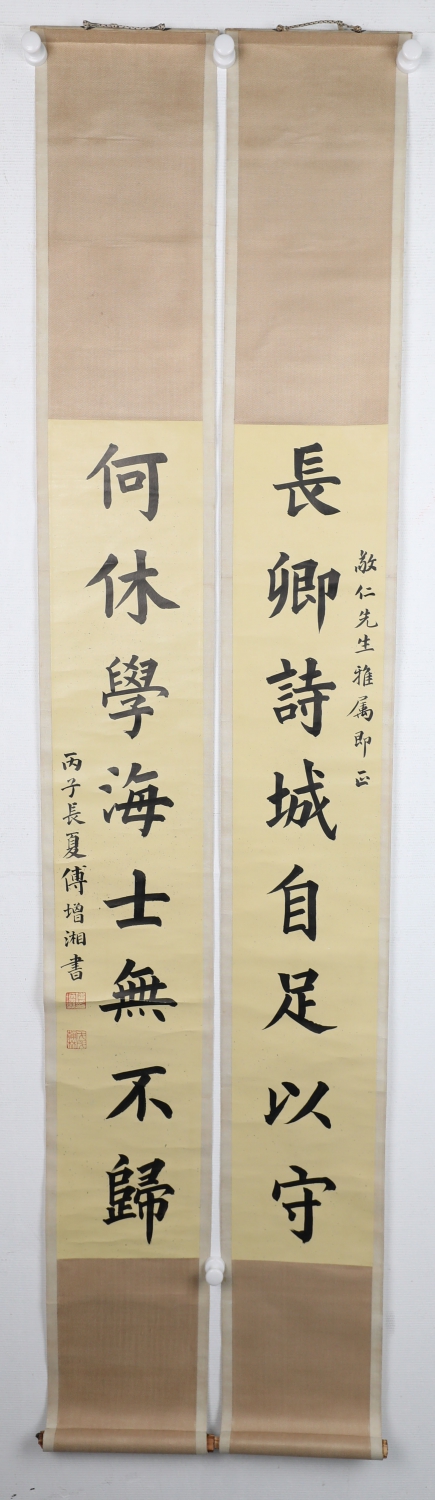 敬仁先生雅属即正
長卿詩城自足以守
何休學海士無不歸
丙子長夏傅增湘書